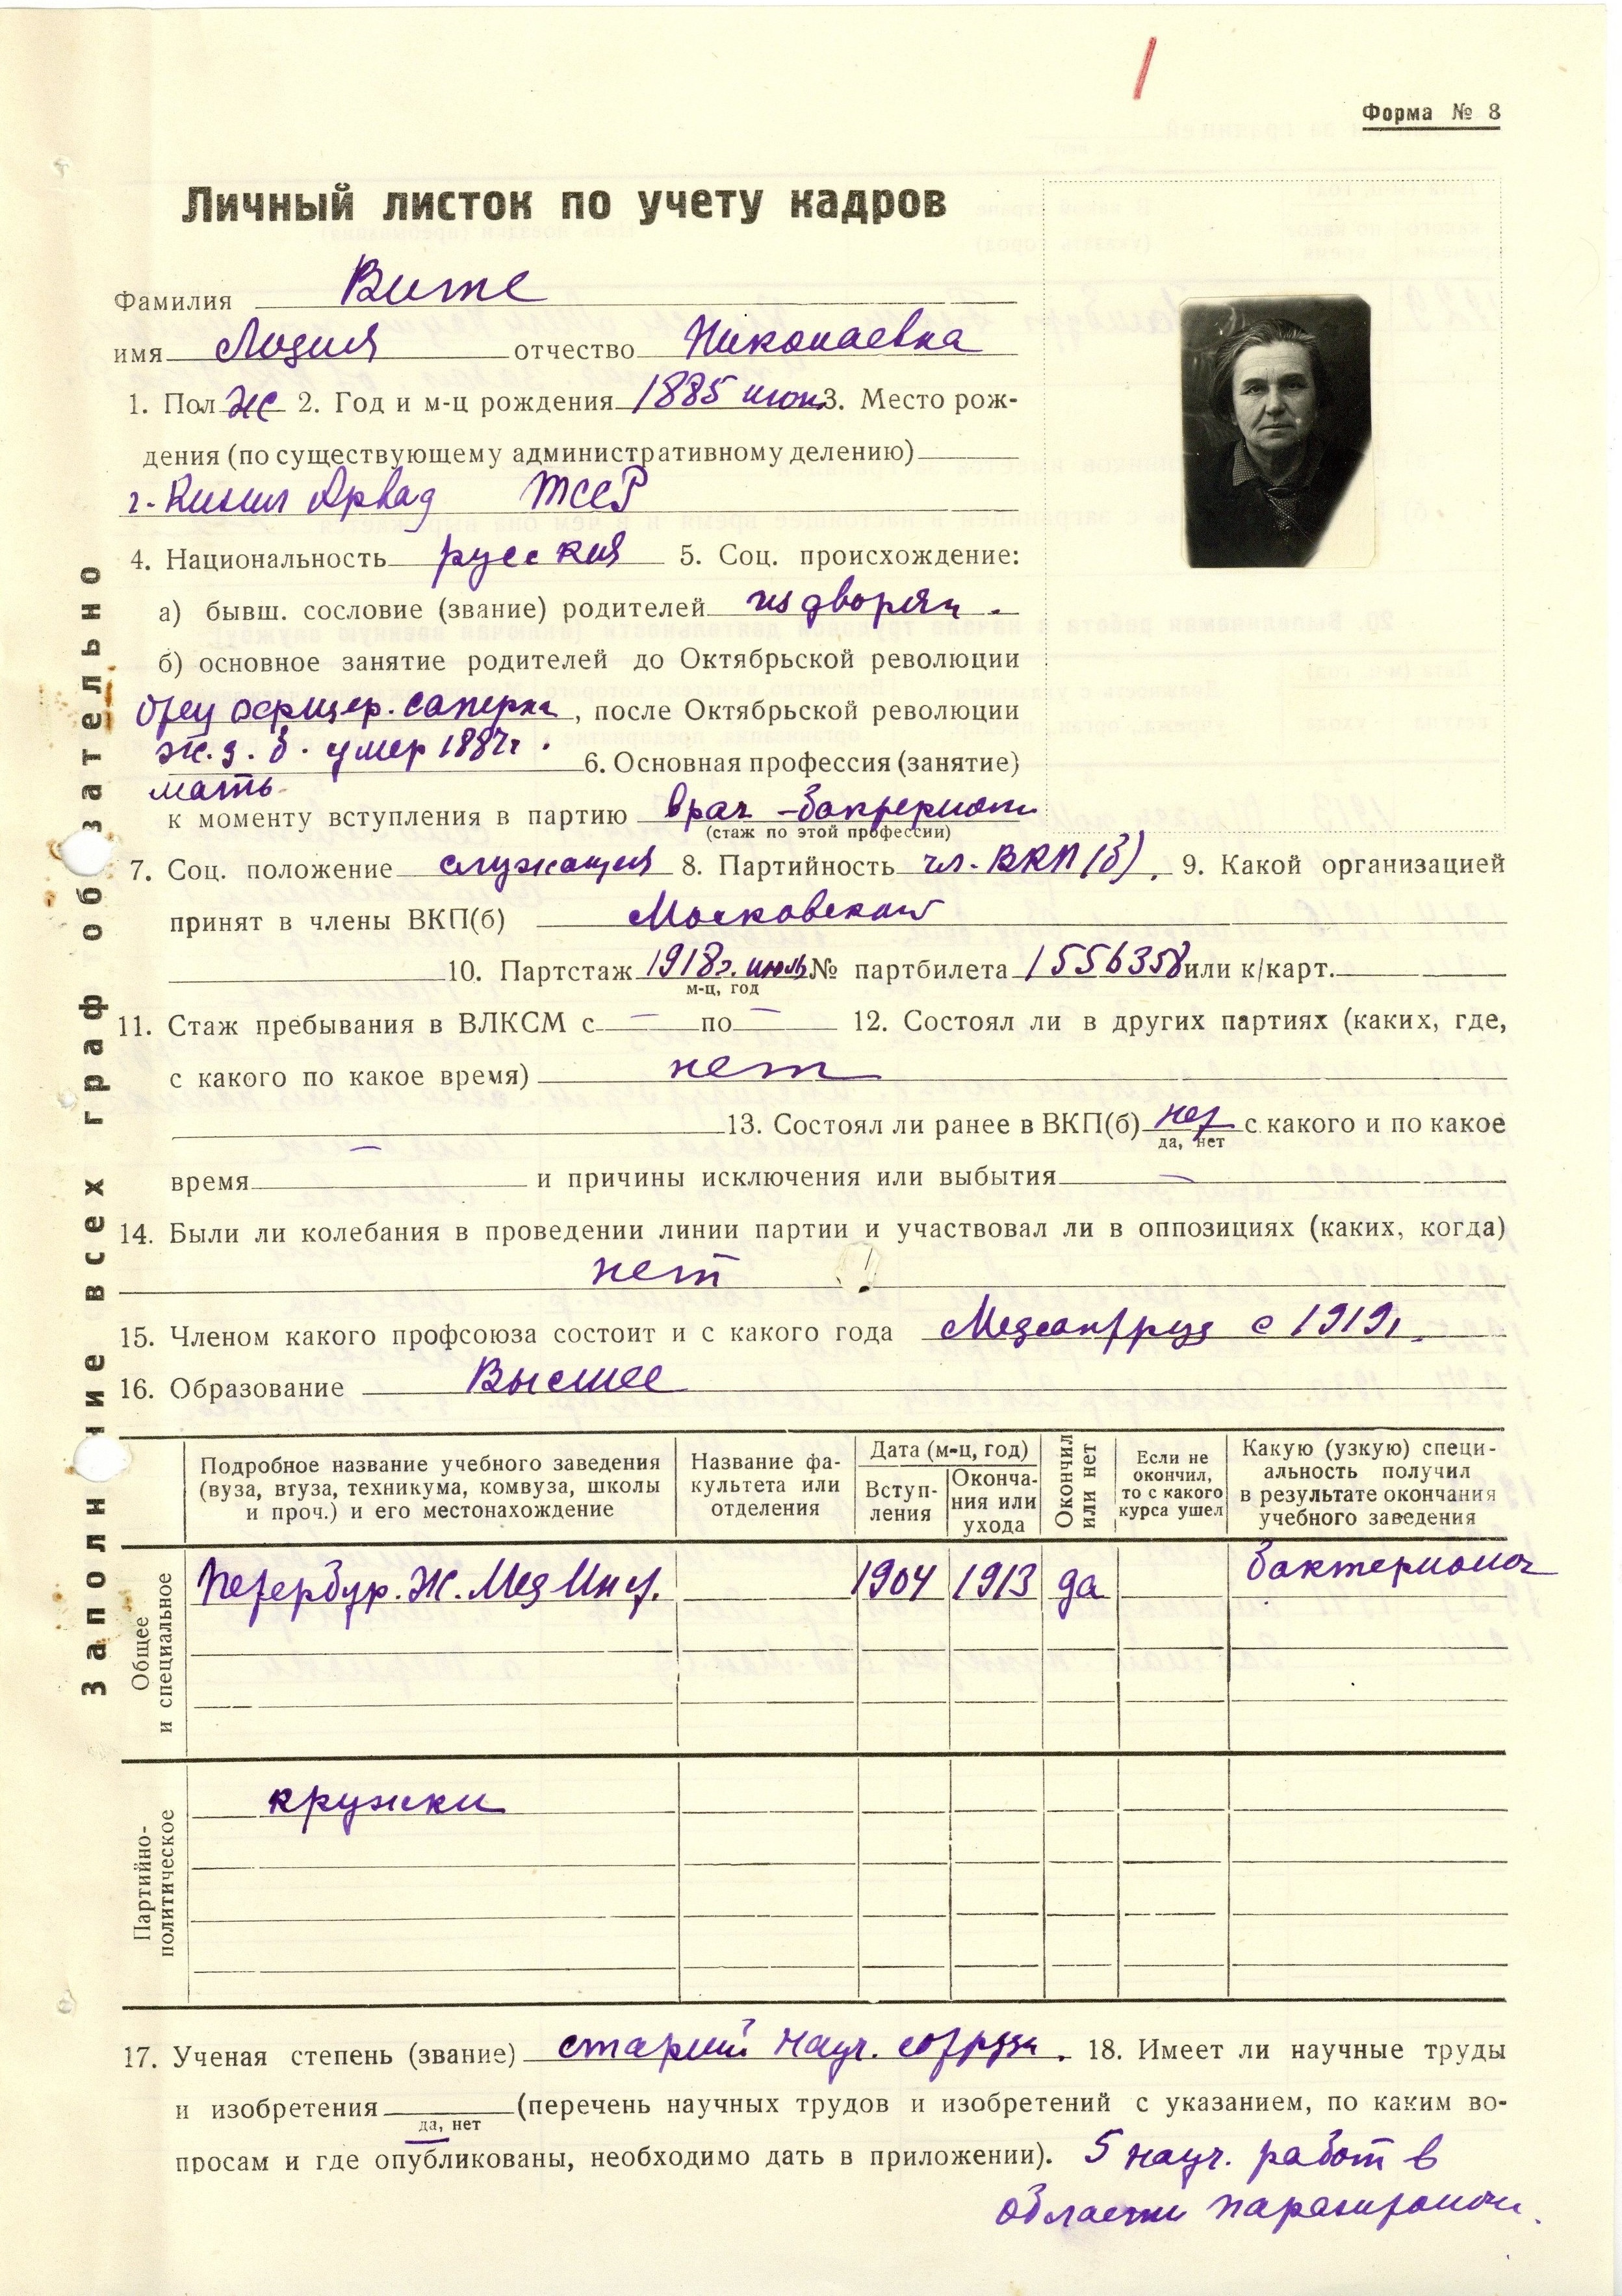 Форма № 8
Личный листок по учету кадров
Фамилия Витте
имя Лидия отчество Николаевна
1. Пол Ж 2. Год и м-ц рождения 1885 июн 3. Место рож-
дения (по существующему административному делению)
г. Кизил Арвад ТССР
4. Национальность русская 5. Соц. происхождение:
а) бывш. сословие (звание) родителей из дворян.
б) основное занятие родителей до Октябрьской революции
Отец офицер. сапер, после Октябрьской революции
ж.д.б. умер 1887г.
6. Основная профессия (занятие)
мать
к моменту вступления в партию врач -бактериол
(стаж по этой профессии)
7. Соц. положение служащая 8. Партийность чл. ВКП(б). 9. Какой организацией
принят в члены ВКП(б) Московской
10. Партстаж 1918г. июль № партбилета 1556358 или к/карт.
м-ц, год
11. Стаж пребывания в ВЛКСМ с — по — 12. Состоял ли в других партиях (каких, где,
с какого по какое время) нет
13. Состоял ли ранее в ВКП(б) нет с какого и по какое
да, нет
время — и причины исключения или выбытия —
14. Были ли колебания в проведении линии партии и участвовал ли в оппозициях (каких, когда)
нет !
15. Членом какого профсоюза состоит и с какого года Медсантруд с 1919г.
16. Образование Высшее
Подробное название учебного заведения (вуза, втуза, техникума, комвуза, школы и проч.) и его местонахождение
Название факультета или отделения
Дата (м-ц, год)
Вступ-
ления
Оконча-
ния или
ухода
Окончил
или нет
Если не
окончил,
то с какого
курса ушел
Какую (узкую) специ-
альность получил
в результате окончания
учебного заведения
Общее
и специальное
Петербур. Ж. Мед Инст. 1904 1913 да бактериолог
Партийно-
политическое
кружки
17. Ученая степень (звание) старший науч. сотрудн. 18. Имеет ли научные труды
и изобретения (перечень научных трудов и изобретений с указанием, по каким во-
да, нет
просам и где опубликованы, необходимо дать в приложении). 5 науч. работ в
области паразитологии.
Заполнение всех граф обязательно